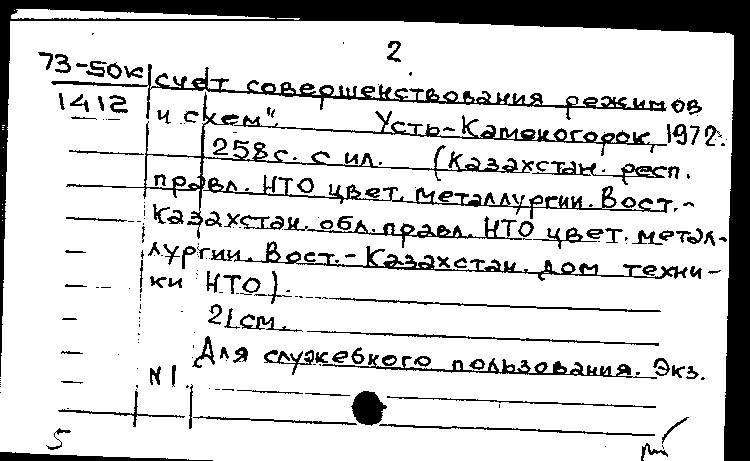 2.
73-50к счет совершенствования режимов
1412 и схем". Усть-Каменогорок, 1972.
258 с. с ил. (Казахстан. респ.
правл. НТО цвет. металлургии. Вост.-
Казахстан. обл. правл. НТО цвет. метал-
лургии. Вост.-Казахстан. дом техни-
ки НТО).
21 см.
Для служебного пользования. Экз.
N 1.
5